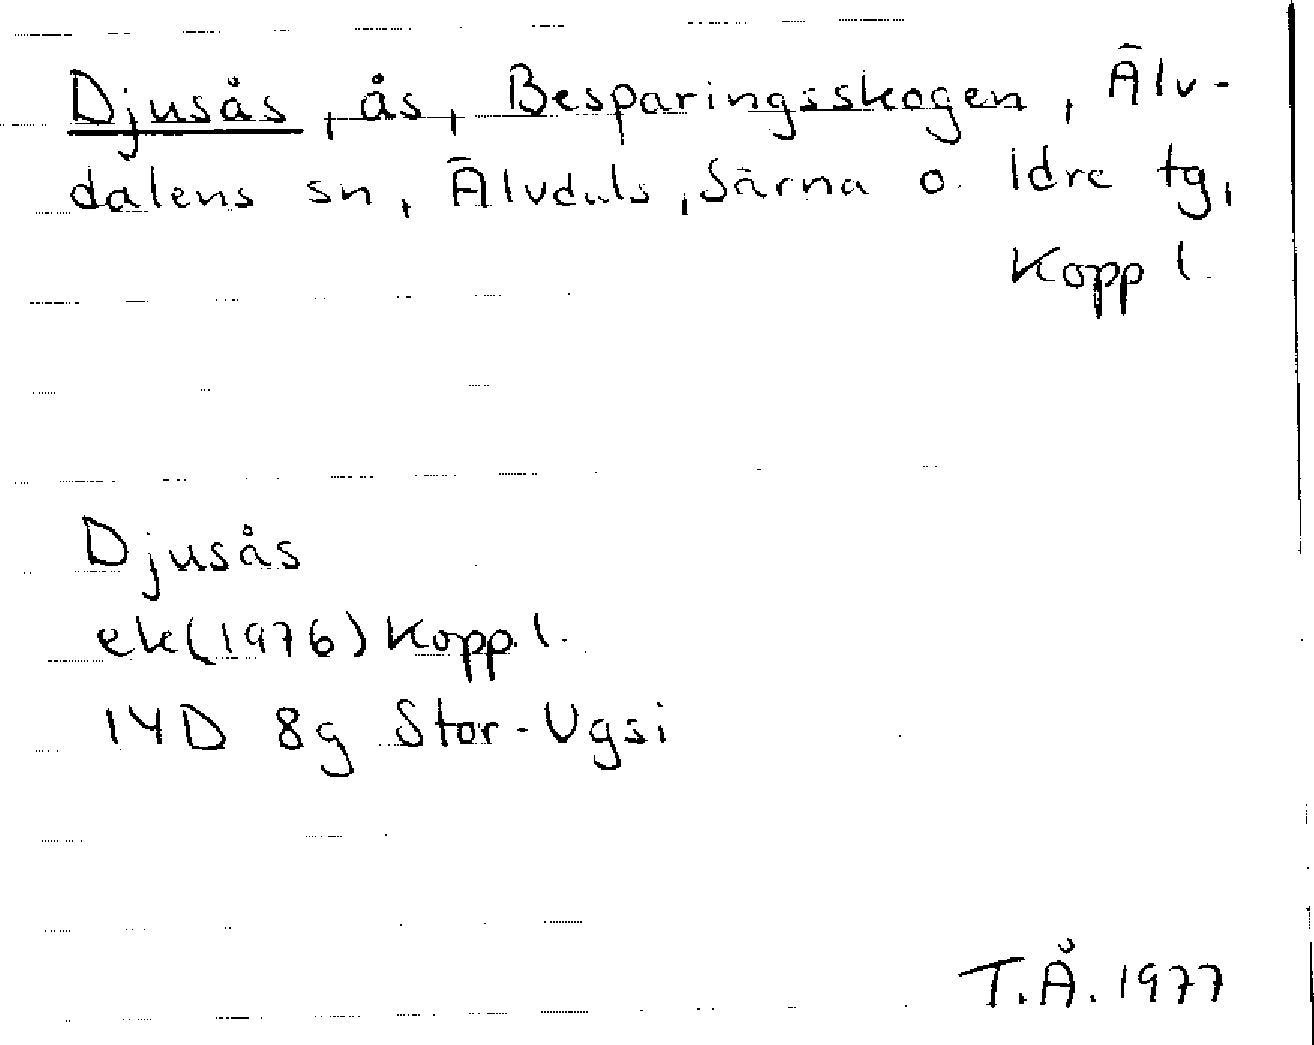 Djusås, ås, Besparingsskogen, Älv-
dalens sn, Älvdals, Särna o. Idre tg,
Kopp l.
Djusås
ek(1976) Kopp. l.
14D 8g Stor-Ugsi
T.Å. 1977